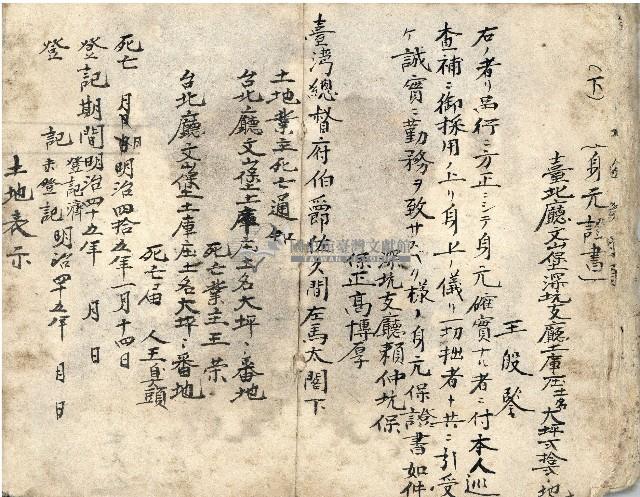 (下)
(身元證書)
臺北廳文山堡深坑支廳土庫庄土名大坪貳拾貳番地
王殷鑒
右ノ者ハ品行ニ方正ニシテ身元確實ナル者ニ付本人巡
查補ニ御採用ノ上ハ身上ノ儀ハ一切拙者ト共ニ引受
ケ誠實ニ勤務ヲ致サスベク様ノ身元保證書如件
深坑支廳賴仲坑保
保正高博厚
臺灣總督府伯爵佐久間左馬太閣下
土地業主死亡通知
台北廳文山堡土庫庄土名大坪 番地
死亡業主王榮
台北廳文山堡土庫庄土名大坪 番地
死亡届 人王貝頭
死亡 月日 明治四拾五年一月十四日
登記期間明治四十五年 月 日
登記 登記濟 未登記 明治四十五年 月 日
土地表示
國史館臺灣文獻館
TAIWAN HISTORICA